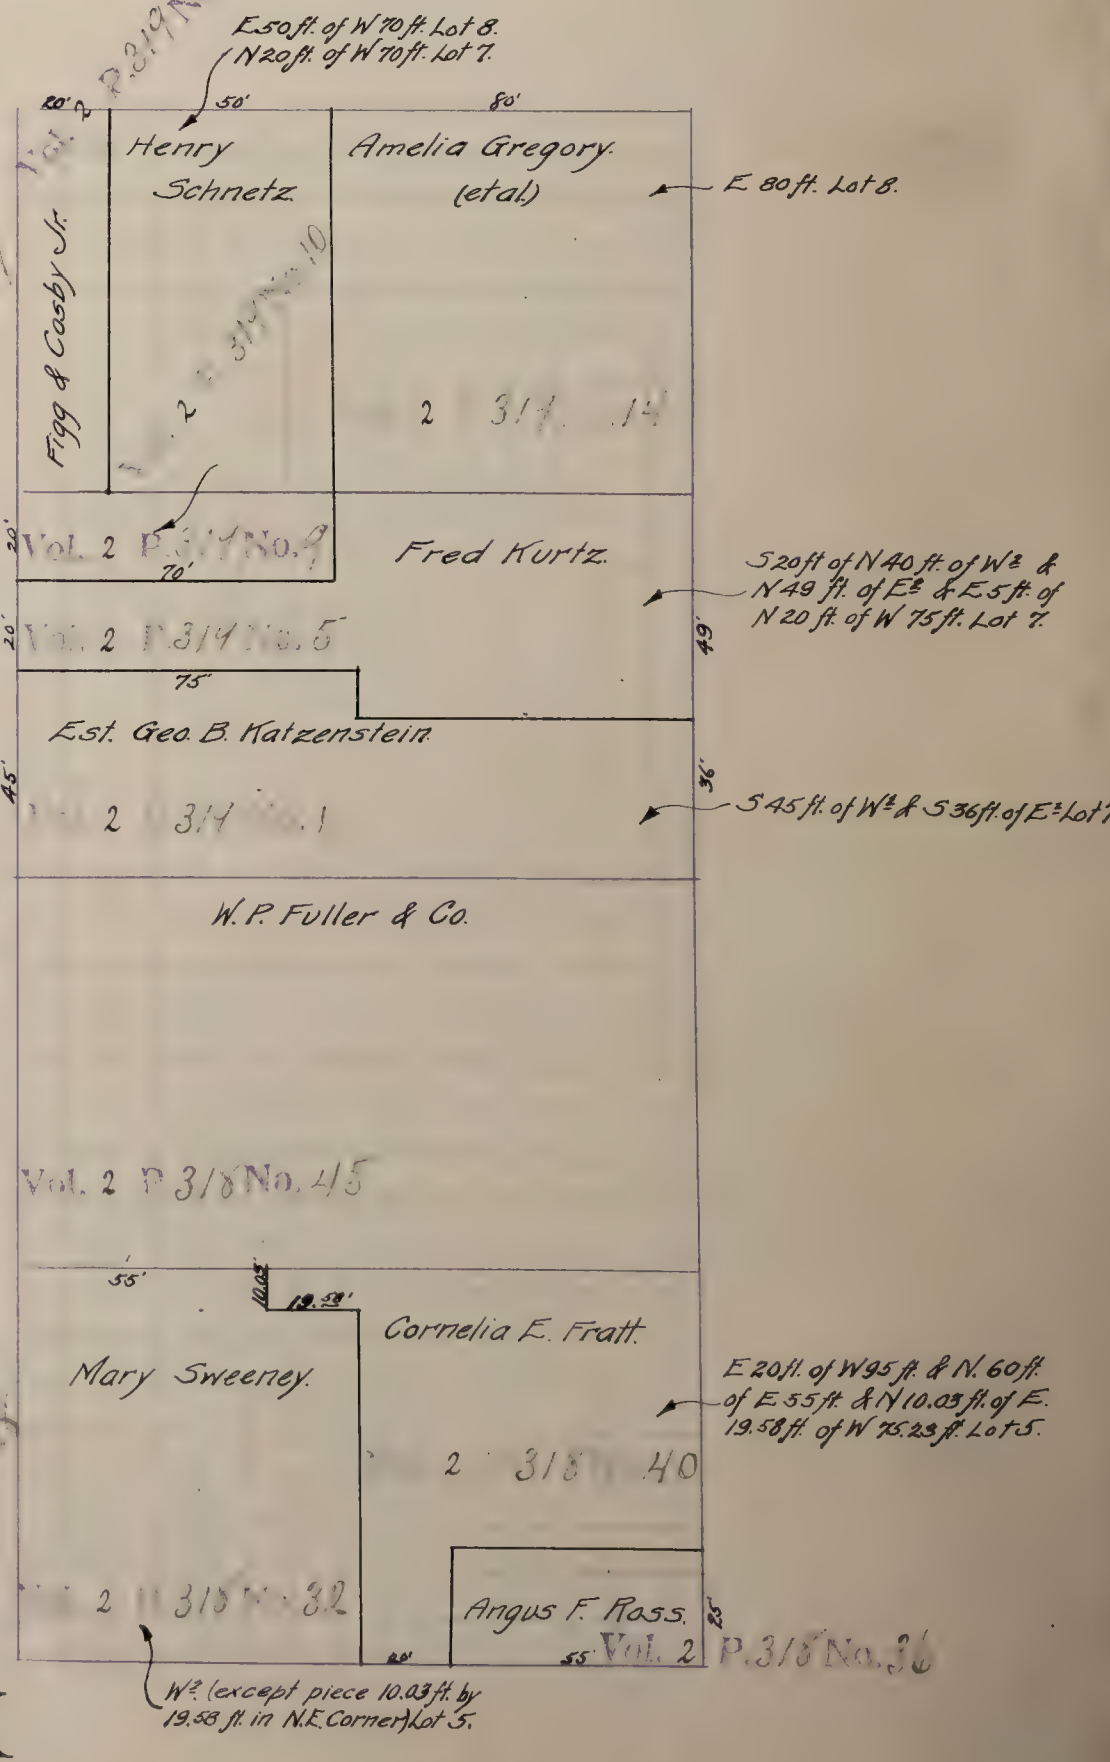 E 50 ft. of W 70 ft. Lot 8.
N 20 ft. of W 70 ft. Lot 7.
20'
50'
80'
2 P. 319
Henry
Schnetz.
Amelia Gregory.
(et al.)
E 80 ft. Lot 8.
Figg & Casby Jr.
2
10
2 14
Vol. 2 P. No. 9
20'
70'
Fred Kurtz.
S 20 ft of N 40 ft. of W½ &
N 49 ft. of E½ & E 5 ft. of
N 20 ft. of W 75 ft. Lot 7.
20'
Vol. 2 No. 5
75'
49'
Est. Geo. B. Katzenstein.
45'
36'
2 No. 1
S 45 ft. of W½ & S 36 ft. of E½ Lot 7
W. P. Fuller & Co.
Vol. 2 P. 318 No. 45
55'
10.03'
19.58'
Cornelia E. Fratt.
Mary Sweeney.
E 20 ft. of W 95 ft. & N. 60 ft.
of E 55 ft. & N 10.03 ft. of E.
19.58 ft. of W 75.23 ft. Lot 5.
2 318 40
2 318 32
Angus F. Ross.
25'
20'
55'
Vol. 2 P. 318 No. 36
W½ (except piece 10.03 ft. by
19.58 ft. in N.E. Corner) Lot 5.